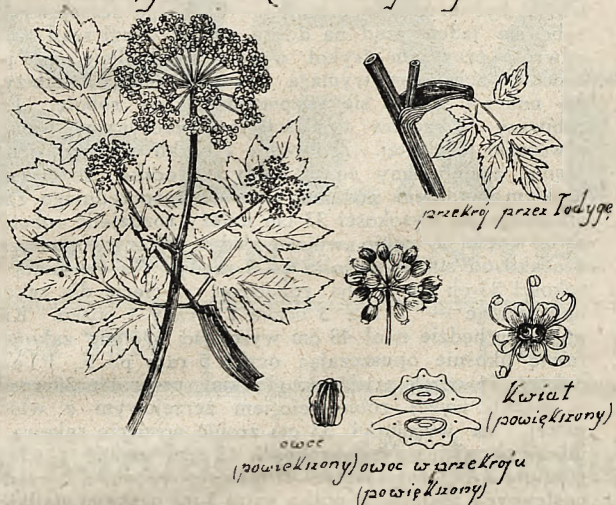 przekrój przez łodygę
Kwiat
(powiększony)
owoc
(powiększony)
owoc w przekroju
(powiększony)